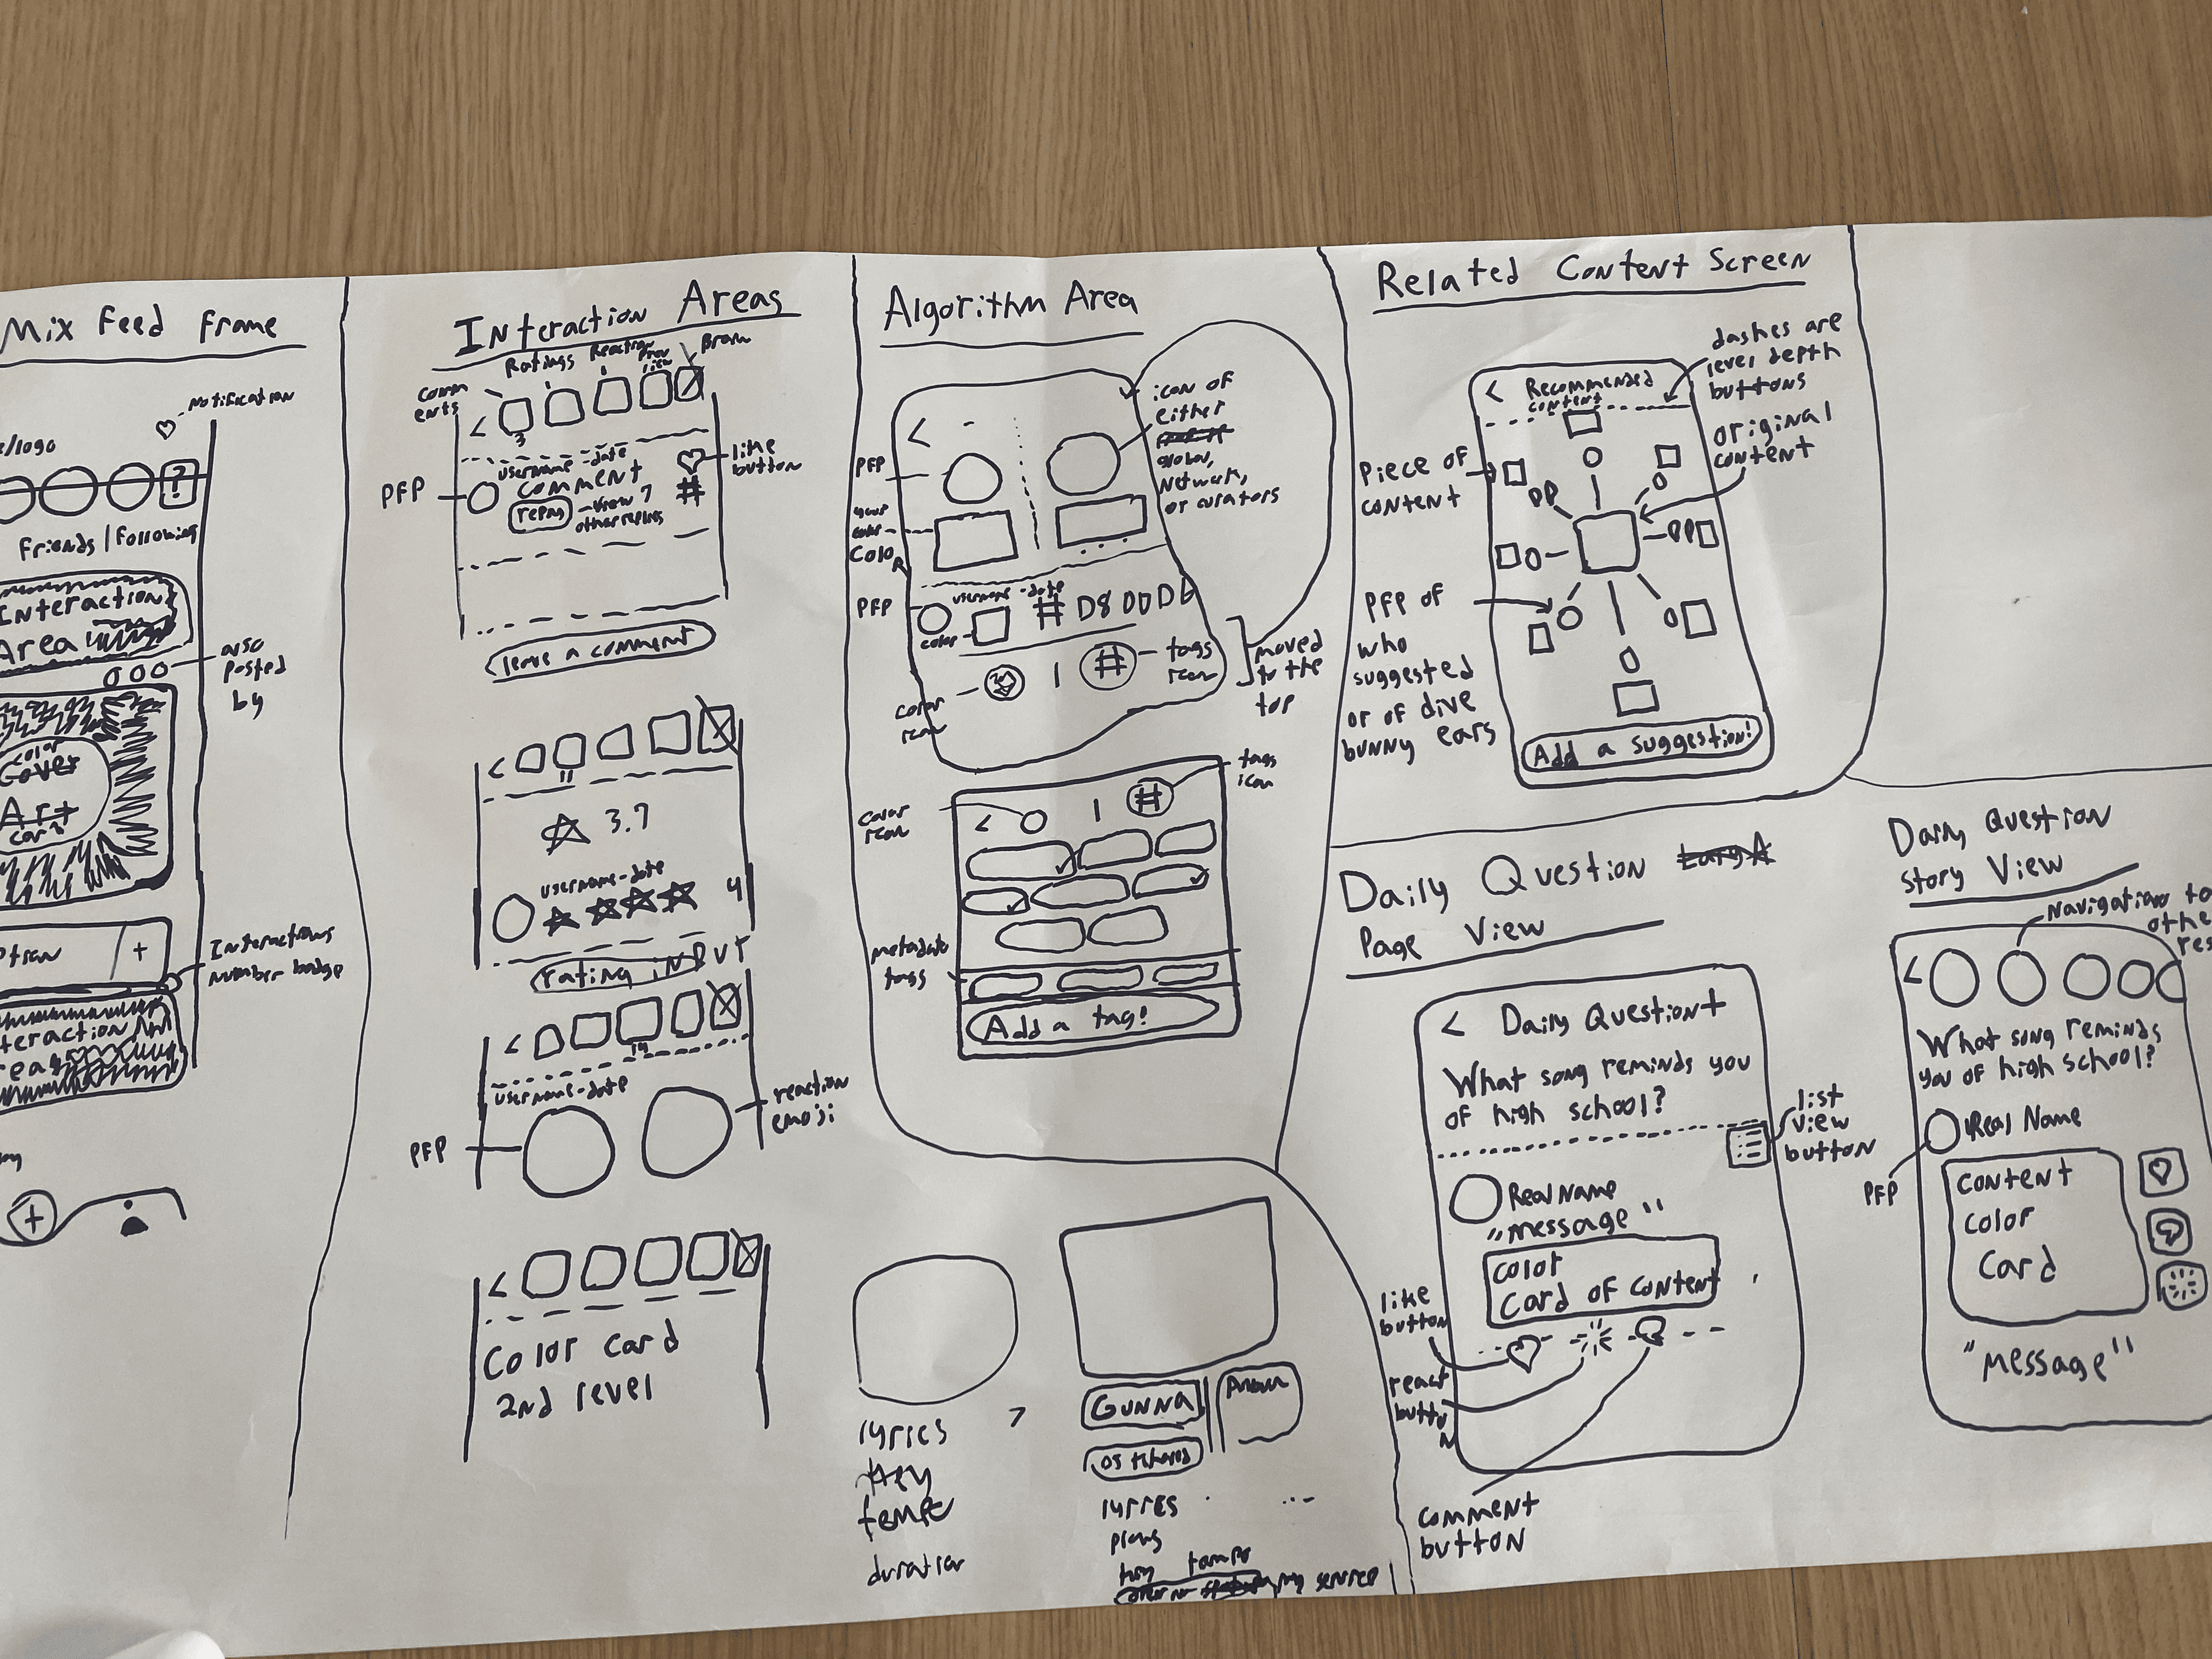 Mix Feed Frame
Notification
e/logo
?
Friends | Following
Interaction
Area
also
posted
by
color
Cover
Art
card
ption / +
Interactions
number badge
teraction
rea
+
Interaction Areas
comm
ents
Ratings
Reaction
<
3
username - date
comment
like
button
PFP
reply
- view 7
other replies
#
leave a comment
<
11
3.7
username - date
4
rating input
<
14
username - date
reaction
emoji
PFP
<
Color Card
2nd level
Algorithm Area
icon of
either
global,
Network,
or curators
<
PFP
your
color
PFP
username - date
# D8DDD6
color
color
icon
|
#
tags
icon
moved
to the
top
tags
icon
color
icon
< | #
metadata
tags
Add a tag!
lyrics
key
tempo
duration
GUNNA
lyrics
plays
key tempo
Related Content Screen
dashes are
level depth
buttons
< Recommended
content
original
content
Piece of
content
PFP of
who
suggested
or of dive
bunny ears
Add a suggestion!
Daily Question
Page View
< Daily Question +
What song reminds you
of high school?
list
view
button
Real Name
"message"
Color
Card of content
like
button
react
button
comment
button
Daily Question
Story View
Navigation to
othe
res
<
What song reminds
you of high school?
Real Name
PFP
Content
Color
Card
"Message"